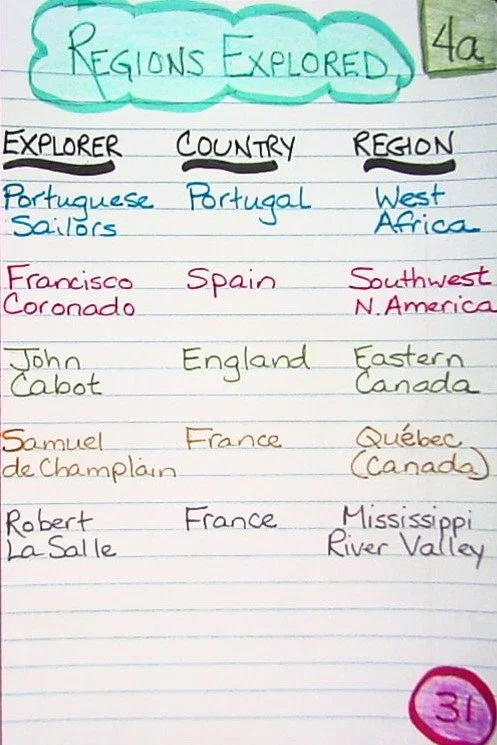 REGIONS EXPLORED
4a
EXPLORER COUNTRY REGION
Portuguese Portugal West
Sailors Africa
Francisco Spain Southwest
Coronado N. America
John England Eastern
Cabot Canada
Samuel France Québec
de Champlain (Canada)
Robert France Mississippi
La Salle River Valley
31